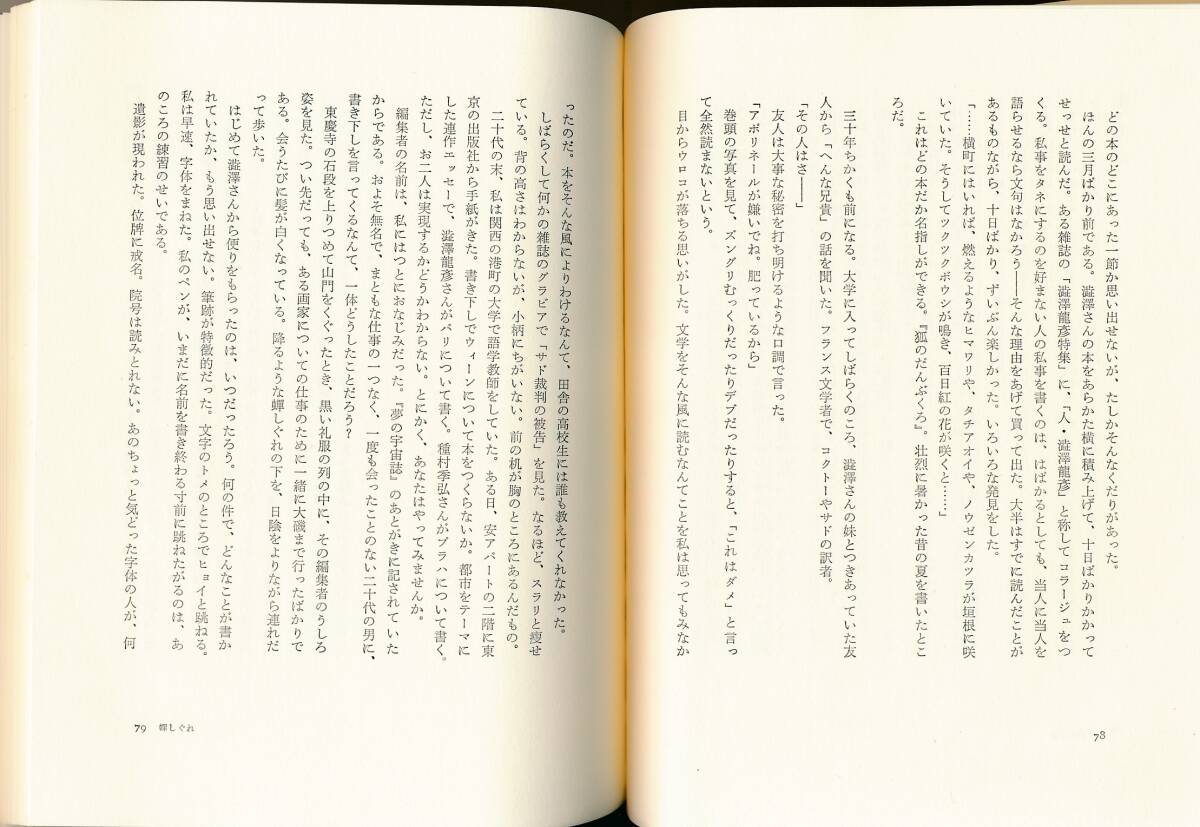 どの本のどこにあった一節か思い出せないが、たしかそんなくだりがあった。
ほんの三月ばかり前である。澁澤さんの本をあらかた横に積み上げて、十日ばかりかかって
せっせと読んだ。ある雑誌の「澁澤龍彥特集」に、「人・澁澤龍彥」と称してコラージュをつ
くる。私事をタネにするのを好まない人の私事を書くのは、はばかるとしても、当人に当人を
語らせるなら文句はなかろう——そんな理由をあげて買って出た。大半はすでに読んだことが
あるものながら、十日ばかり、ずいぶん楽しかった。いろいろな発見をした。
「……横町にはいれば、燃えるようなヒマワリや、タチアオイや、ノウゼンカツラが垣根に咲
いていた。そうしてツクツクボウシが鳴き、百日紅の花が咲くと……」
これはどの本だか名指しができる。『狐のだんぶくろ』。壮烈に暑かった昔の夏を書いたとこ
ろだ。
三十年ちかくも前になる。大学に入ってしばらくのころ、澁澤さんの妹とつきあっていた友
人から「へんな兄貴」の話を聞いた。フランス文学者で、コクトーやサドの訳者。
「その人はさ——」
友人は大事な秘密を打ち明けるような口調で言った。
「アポリネールが嫌いでね。肥っているから」
巻頭の写真を見て、ズングリむっくりだったりデブだったりすると、「これはダメ」と言っ
て全然読まないという。
目からウロコが落ちる思いがした。文学をそんな風に読むなんてことを私は思ってもみなか
78
ったのだ。本をそんな風によりわけるなんて、田舎の高校生には誰も教えてくれなかった。
しばらくして何かの雑誌のグラビアで「サド裁判の被告」を見た。なるほど、スラリと痩せ
ている。背の高さはわからないが、小柄にちがいない。前の机が胸のところにあるんだもの。
二十代の末、私は関西の港町の大学で語学教師をしていた。ある日、安アパートの二階に東
京の出版社から手紙がきた。書き下しでウィーンについて本をつくらないか。都市をテーマに
した連作エッセーで、澁澤龍彥さんがパリについて書く。種村季弘さんがプラハについて書く。
ただし、お二人は実現するかどうかわからない。とにかく、あなたはやってみませんか。
編集者の名前は、私にはつとにおなじみだった。『夢の宇宙誌』のあとがきに記されていた
からである。およそ無名で、まともな仕事の一つなく、一度も会ったことのない二十代の男に、
書き下しを言ってくるなんて、一体どうしたことだろう？
東慶寺の石段を上りつめて山門をくぐったとき、黒い礼服の列の中に、その編集者のうしろ
姿を見た。つい先だっても、ある画家についての仕事のために一緒に大磯まで行ったばかりで
ある。会うたびに髪が白くなっている。降るような蟬しぐれの下を、日陰をよりながら連れだ
って歩いた。
はじめて澁澤さんから便りをもらったのは、いつだったろう。何の件で、どんなことが書か
れていたか、もう思い出せない。筆跡が特徴的だった。文字のトメのところでヒョイと跳ねる。
私は早速、字体をまねた。私のペンが、いまだに名前を書き終わる寸前に跳ねたがるのは、あ
のころの練習のせいである。
遺影が現われた。位牌に戒名。院号は読みとれない。あのちょっと気どった字体の人が、何
79 蟬しぐれ